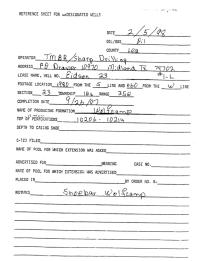 REFERENCE SHEET FOR UNDESIGNATED WELLS
DATE 2/5/92
OIL/GAS Oil
COUNTY Lea
OPERATOR TMBR/Sharp Drilling
ADDRESS P.O. Drawer 10970 Midland TX 79702
LEASE NAME, WELL NO. Eidson 23 #1-L
FOOTAGE LOCATION 1980 FROM THE S LINE AND 660 FROM THE W LINE
SECTION 23 TOWNSHIP 16s RANGE 35E
COMPLETION DATE 9/26/91
NAME OF PRODUCING FORMATION Wolfcamp
TOP OF PERFORATIONS 10206-10214
DEPTH TO CASING SHOE
C-123 FILED
NAME OF POOL FOR WHICH EXTENSION WAS ASKED
ADVERTISED FOR HEARING CASE NO.
NAME OF POOL FOR WHICH EXTENSION WAS ADVERTISED
PLACED IN BY ORDER NO. R-
REMARKS Shoebar Wolfcamp